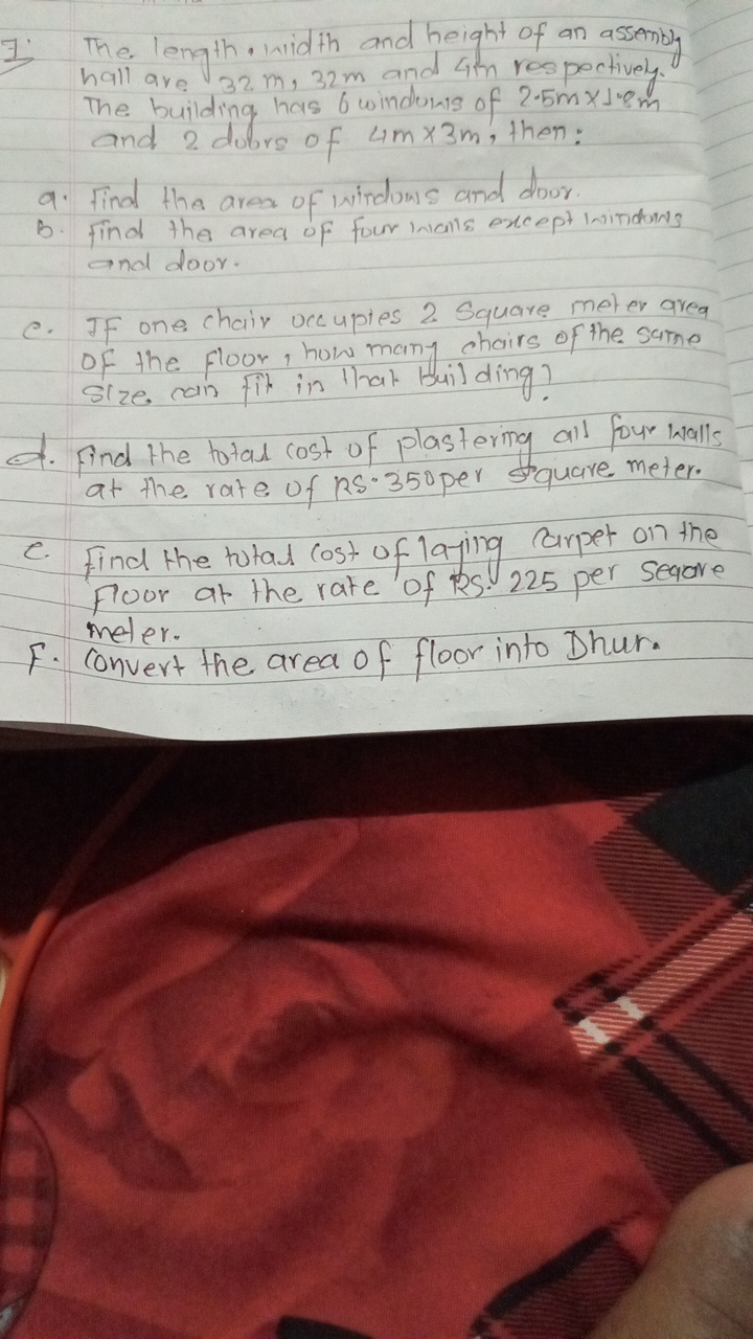 7. The length, width and height of an assembly
hall are 32 m, 32m and 4m respectively.
The building has 6 windows of 2.5m x 1.8m
and 2 doors of 4m x 3m, then:
a. Find the area of windows and door.
B. Find the area of four walls except windows
and door.
c. If one chair occupies 2 Square meter area
of the floor, how many chairs of the same
size can fit in that building?
d. Find the total cost of plastering all four walls
at the rate of RS. 350 per square meter.
e. Find the total cost of laying Carpet on the
Floor at the rate of RS. 225 per Seqare
meter.
F. Convert the area of floor into Dhur.